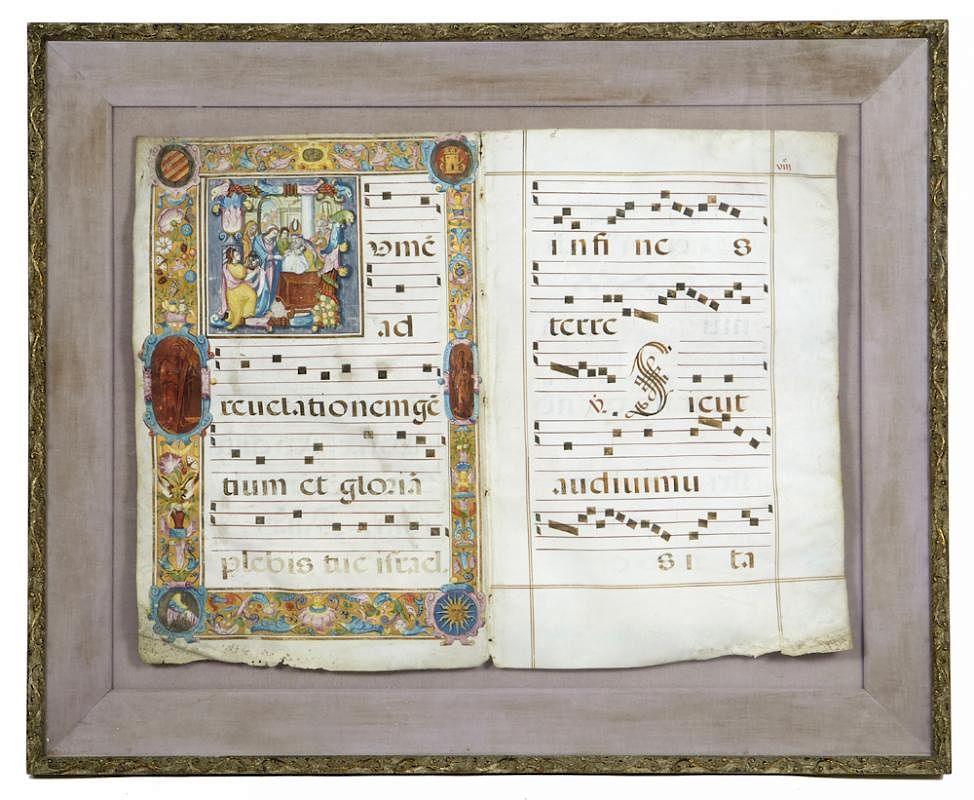 vmē
ad
reuelationemgē
tium et gloriā
plebis tue israel.
viij
i nfi ne s
terre
℣. Sicut
audiuimu
s i ta